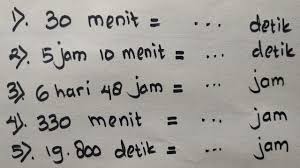 1). 30 menit = ... detik
2). 5 jam 10 menit = ... detik
3). 6 hari 48 jam = ... jam
4). 330 menit = ... jam
5). 19.800 detik = ... jam